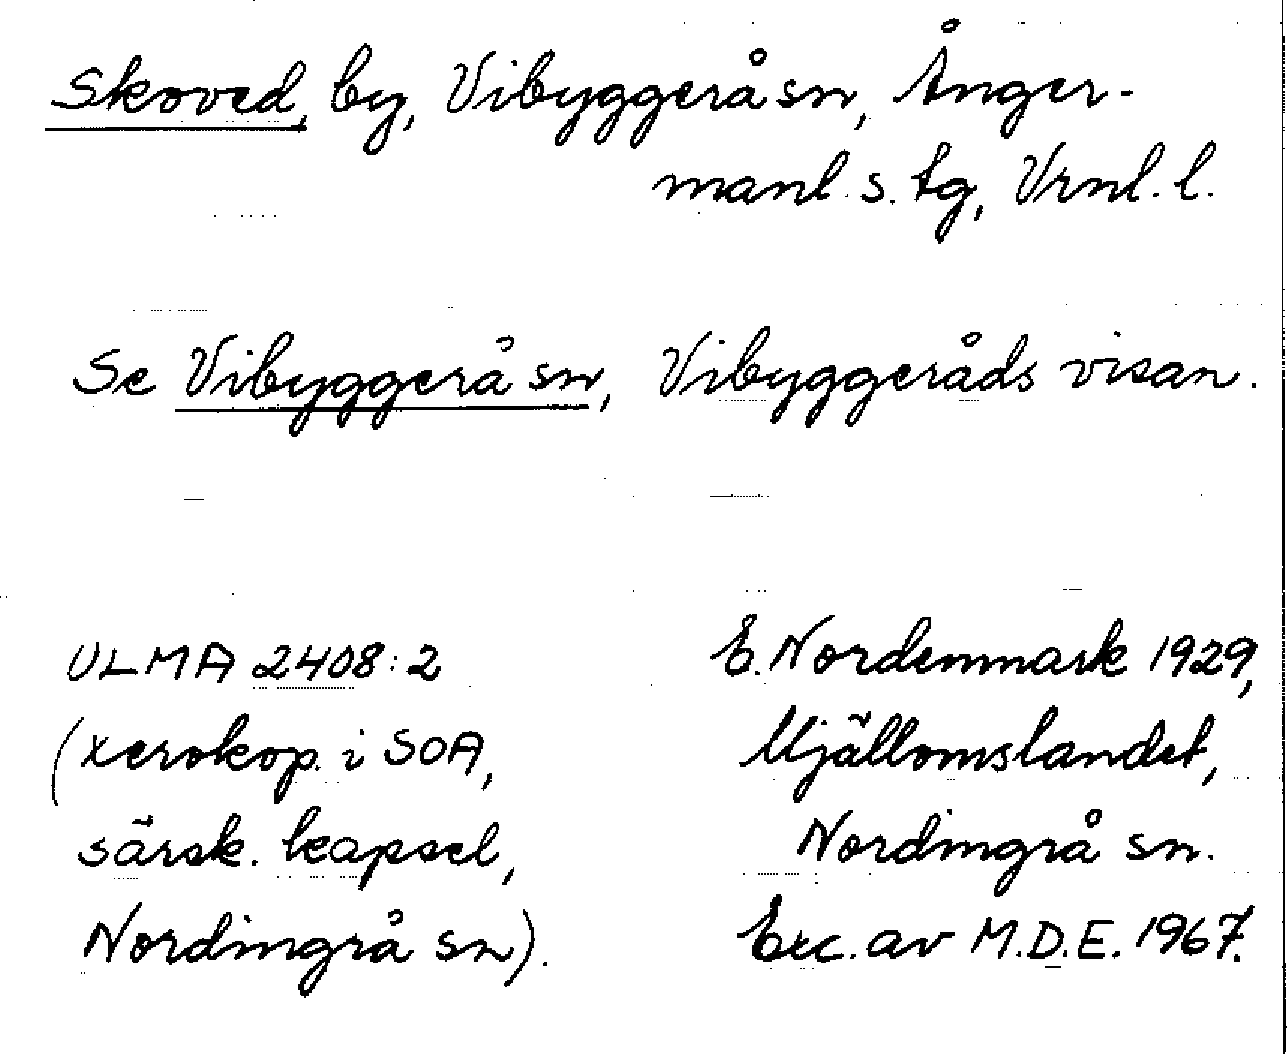 Skoved, by, Vibyggerå sn, Ånger-
manl. s. tg, Vrnl. l.
Se Vibyggerå sn, Vibyggeråds visan.
ULMA 2408:2
(xerokop. i SOA,
särsk. kapsel,
Nordingrå sn).
E. Nordenmark 1929,
Mjällomslandet,
Nordingrå sn.
Exc. av M.D.E. 1967.